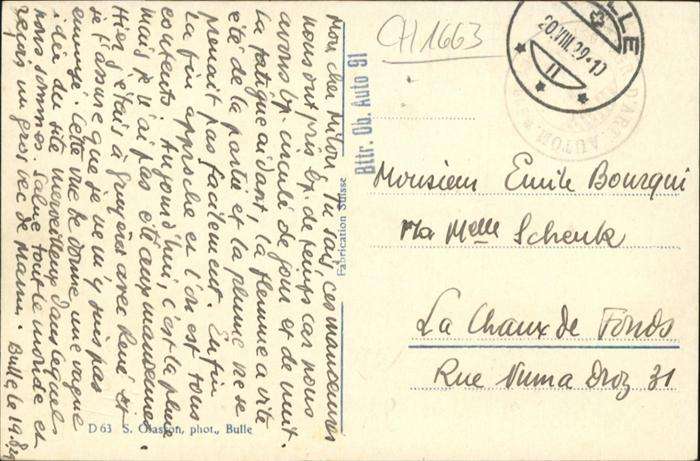 Mon cher Milon. Tu sais, ces manoeuvres
nous ont pris bp. de temps car nous
avons bp. circulé de jour et de nuit.
La fatigue aidant, la flemme a vite
été de la partie et la plume ne se
prenait pas facilement. Enfin
la fin approche et l'on est tous
contents. Aujourd'hui, c'est la pluie
mais je n'ai pas été aux manoeuvres.
Hier j'étais à Gruyères avec René et
je t'assure que je ne m'y suis pas
ennuyé. Cette vue te donne une vague
idée du site merveilleux dans lequel
nous sommes. Salue tout le monde et
reçois un gros bec de Bulle, le 19.8.39
D 63 S. Glasson, phot., Bulle
Fabrication Suisse
Bttr. Ob. Auto 91
CH1663
20.VIII.39-10
II
D'ART. AUTOM.
Monsieur Emile Bourqui
Melle Schenk
La Chaux de Fonds
Rue Numa Droz 31